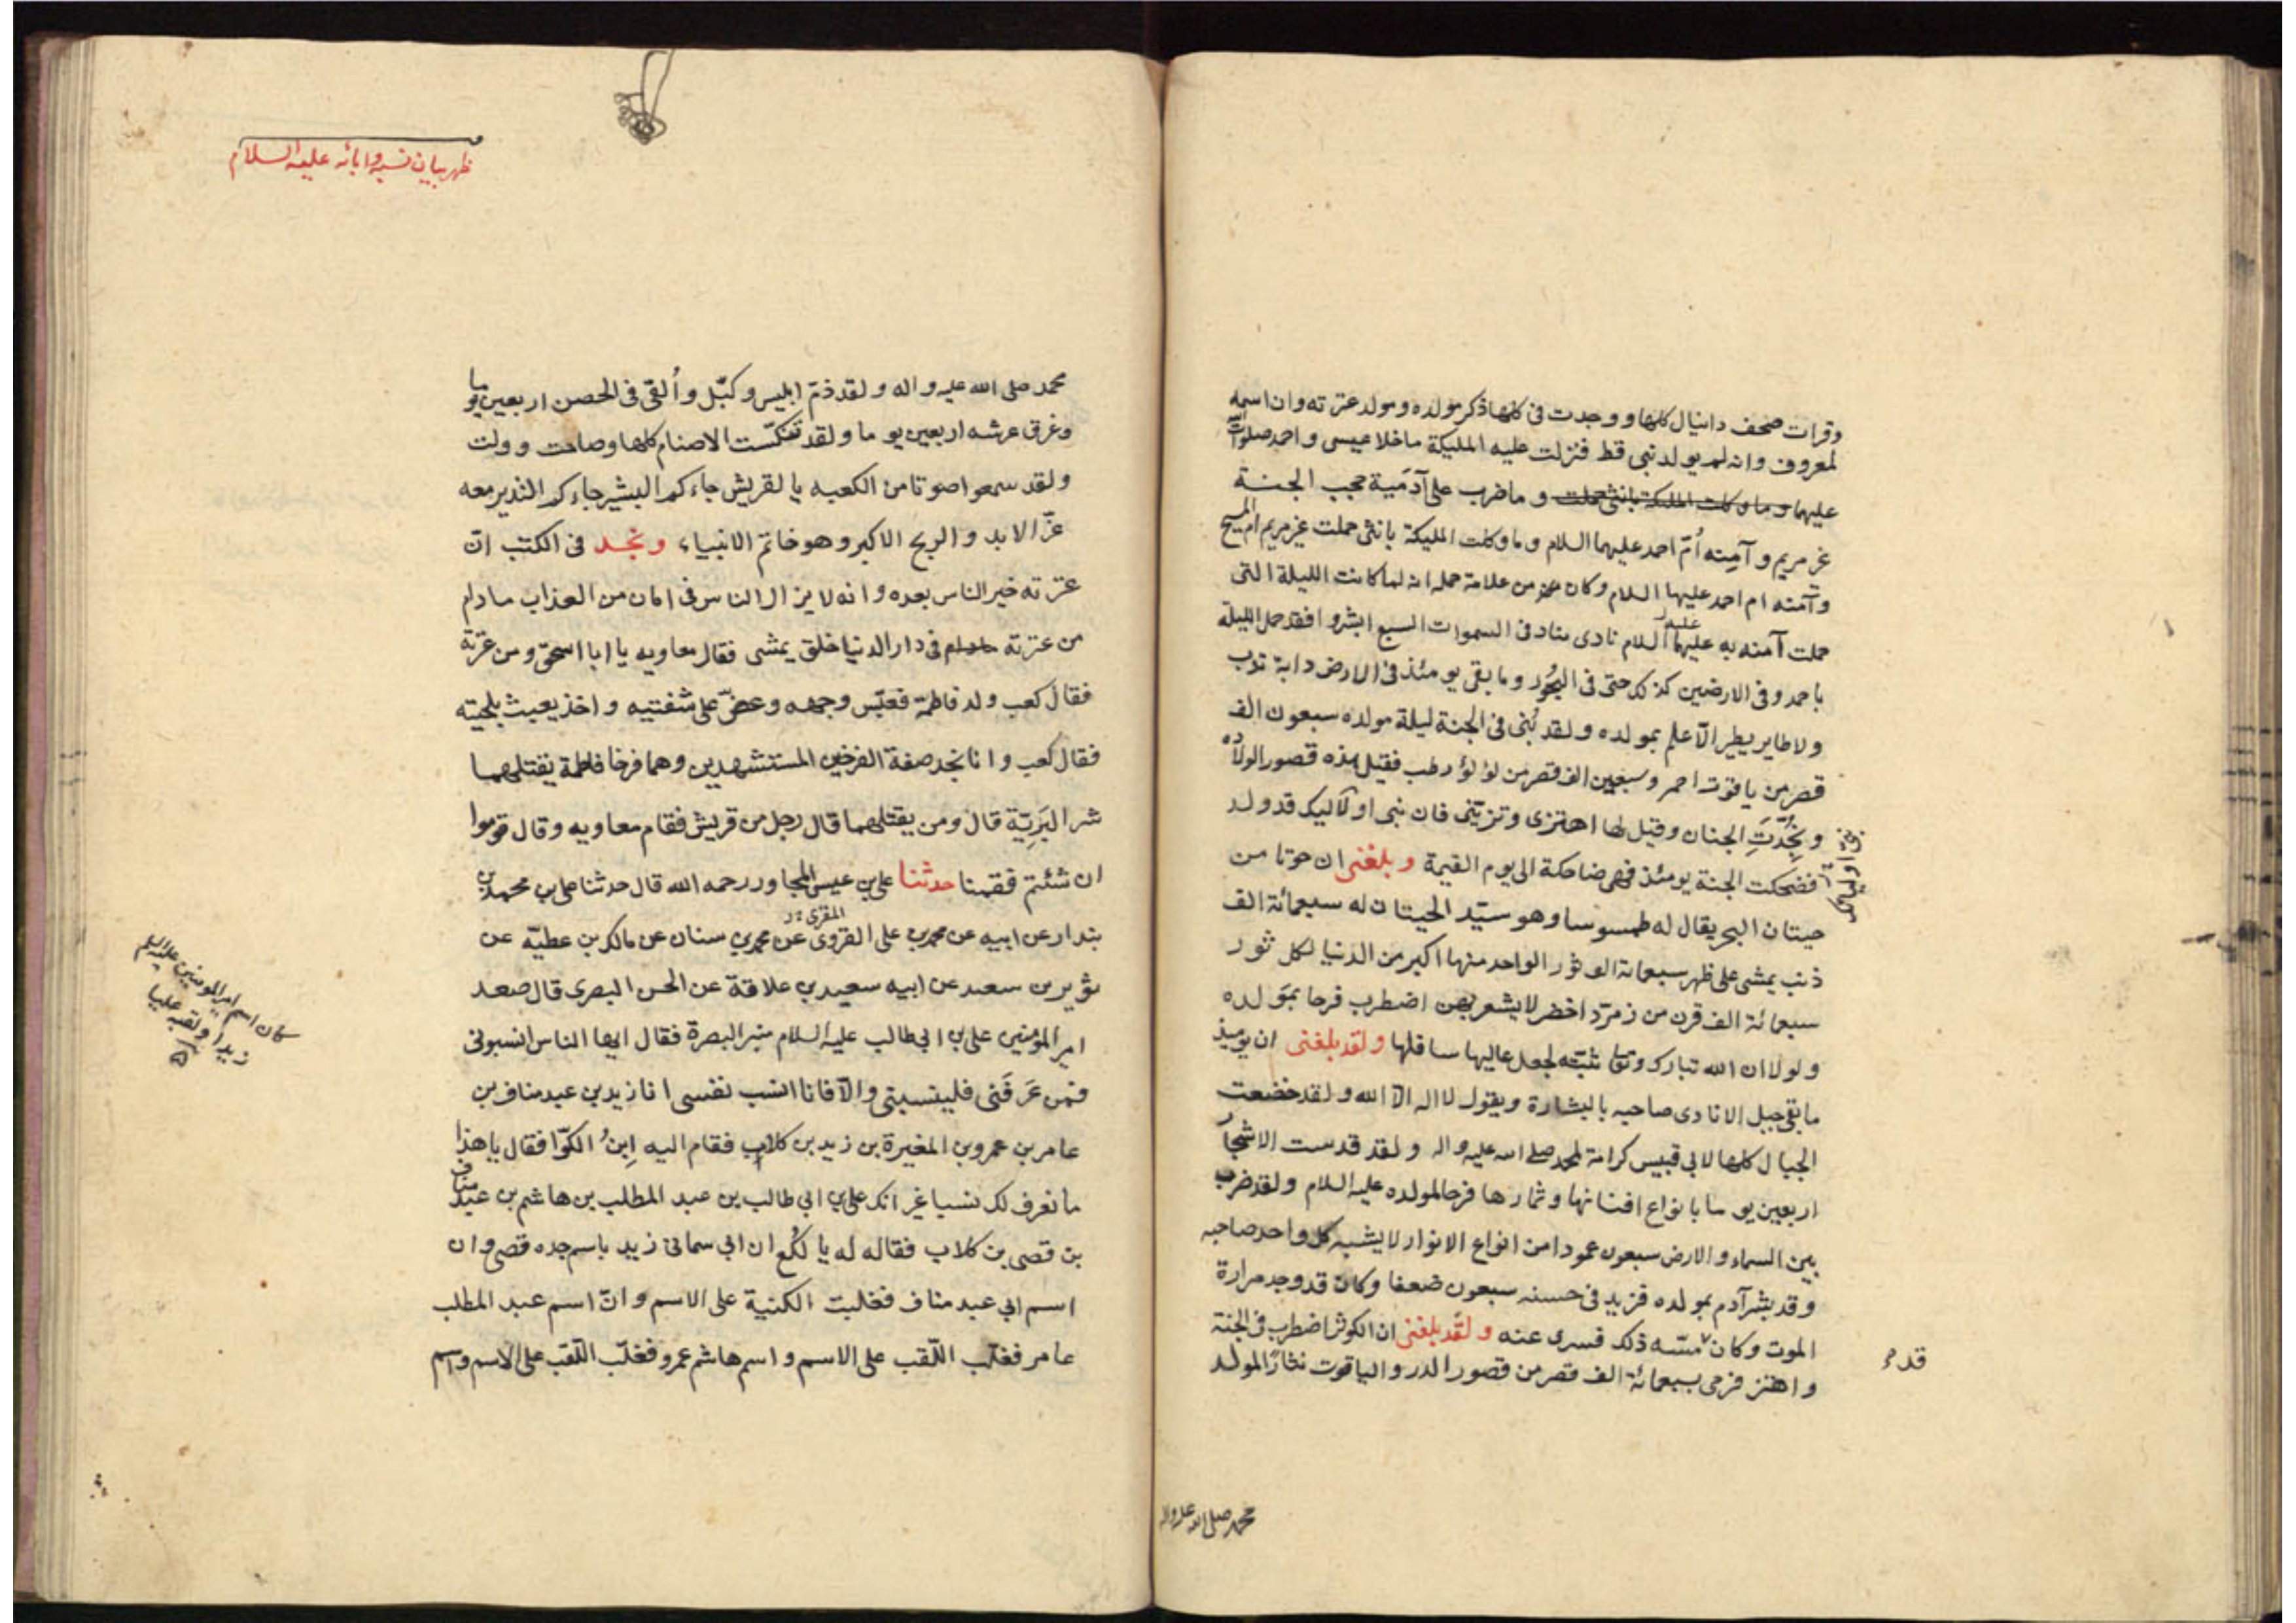 وقرات صحف دانيال كلها ووجدت فى كلها ذكر مولده ومولد عترته وان اسمه
لمعروف وانه لم يولد نبى قط فنزلت عليه المليكة ما خلا عيسى واحمد صلوات الله
عليهما وما وكلت المليكة بانثى حملت وما ضرب على آدمية حجب الجنة
غر مريم وآمنه أمّ احمد عليهما السلام وما وكلت المليكة بانثى حملت غير مريم ام المسيح
وآمنه ام احمد عليها السلام وكان من علامة حمله انه لما كانت الليلة التى
حملت آمنه به عليهما السلام نادى مناد فى السموات السبع ابشروا فقد حمل الليلة
باحمد وفى الارضين كذلك حتى فى البُحُور وما بقى يومئذ فى الارض دابة تدب
ولا طاير يطير الّا علم بمولده ولقد بُنى فى الجنة ليلة مولده سبعون الف
قصر من ياقوت احمر وسبعين الف قصر من لؤلؤ رطب فقيل هذه قصور الولادة
ونجِّدَّتَ الجنان وقيل لها اهتزى وتزيّنى فان نبى اوليآئك قد ولد
فضحكت الجنة يومئذ فهى ضاحكة الى يوم القيمة وبلغنى ان حوتا من
حيتان البحر يقال له طمسوسا وهو سيّد الحيتان له سبعمائة الف
ذنب يمشى على ظهر سبعمائة الف ثور الواحد منها اكبر من الدنيا لكل ثور
سبعمائة الف قرن من زمرّد اخضر لا يشعر بهن اضطرب فرحا بمولده
ولولا ان الله تبارك وتعا ثبّته لجعل عاليها سافلها ولقد بلغنى ان يوميذ
ما بقى جبل الا نادى صاحبه بالبشارة ويقول لا اله الّا الله ولقد خضعت
الجبال كلها لابى قبيس كرامة لمحمد صلى الله عليه واله ولقد قدست الاشجار
اربعين يوما بانواع افنانها وثمارها فرحا لمولده عليه السلام ولقد ضرب
بين السماء والارض سبعون عمودا من انواع الانوار لا يشبه كل واحد صاحبه
وقد بشر آدم بمولده فزيد فى حسنه سبعون ضعفا وكان قد وجد مرارة
الموت وكان مسّه ذلك فسرى عنه ولقد بلغنى ان الكوثر اضطرب فى الجنة
واهتز فرمى بسبعمائة الف قصر من قصور الدر والياقوت نثارًا لمولد
قد
محمد صلى الله عليه واله
ظهر بيان نسبه وابائه عليه السلام
محمد صلى الله عليه واله ولقد ذمّ ابليس وكبّل وأُلقى فى الحصن اربعين يوما
وغرق عرشه اربعين يوما ولقد تنكسّت الاصنام كلها وصاحت وولت
ولقد سمعوا صوتا من الكعبه يا لقريش جاءكم البشير جاءكم النذير معه
عزّ الابد والربح الاكبر وهو خاتم الانبياء ونجد فى الكتب انّ
عترته خير الناس بعده وانه لا يزال الناس فى امان من العذاب مادام
من عترته فى دار الدنيا خلق يمشى فقال معاويه يا ابا اسحق ومن عترته
فقال كعب ولد فاطمة فعبّس وجهه وعضّ على شفتيه واخذ يعبث بلحيته
فقال كعب وانا نجد صفة الفرخين المستشهدين وهما فرخا فاطمة يقتلهما
شر البَرِيّة قال ومن يقتلهما قال رجل من قريش فقام معاويه وقال قوموا
ان شئتم فقمنا حدثنا على بن عيسى المجاور رحمه الله قال حدثنا على بن محمد بن
بندار عن ابيه عن محمد بن على القروى المقرى عن محمد بن سنان عن مالك بن عطيّه عن
ثوير بن سعيد عن ابيه سعيد بن علاقة عن الحسن البصرى قال صعد
امير المؤمنين على بن ابى طالب عليه السلام منبر البصرة فقال ايها الناس انسبونى
فمن عَرَفَنى فلينسبنى والّا فانا انسب نفسى انا زيد بن عبد مناف بن
عامر بن عمرو بن المغيرة بن زيد بن كلاب فقام اليه اِبنُ الكوّا فقال يا هذا
ما نعرف لك نسبا غير انك على بن ابى طالب بن عبد المطلب بن هاشم بن عبد مناف
بن قصى بن كلاب فقاله له يا لُكَع ان ابى سمانى زيد باسم جده قصى وان
اسم ابى عبد مناف فغلبت الكنية على الاسم وانّ اسم عبد المطلب
عامر فغلب اللّقب على الاسم واسم هاشم عمرو فغلّب اللّقب على الاسم واسم
كان اسم امير المومنين عليه السلم
زيدا ولقبه عليا